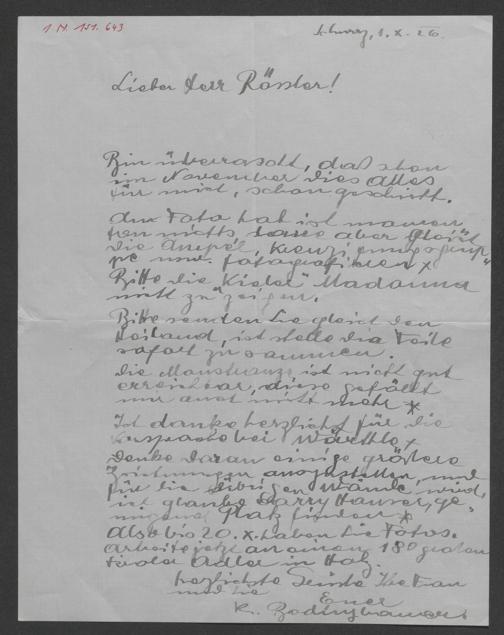 I. N. 151.643
Schwaz, 1. X. 26.
Lieber Herr Rössler!
Bin überrascht, daß schon
im November dies Alles
für mich, schon geschieht.
Am Foto hat ist
ten nichts, aber gleich
die Kreuzigungsgrup"
pe und fotografieren x
Bitte die "Madonna
nicht zu zeigen.
Bitte senden Sie gleich den
Heiland, ich stelle die Teile
sofort zusammen.
Die Monstranze ist nicht gut
erreichbar, diese gefällt
mir auch nicht mehr x
Ich danke herzlichst für die
bei Würthle x
Denke daran einige größere
Zeichnungen auszustellen, und
für die übrigen Wände wird,
ich glaube Harry Hauser, ge"
nügend Platz finden x
Also bis 20. X. haben Sie Fotos.
Arbeite jetzt an einem, 180 großen
Tiroler Adler in Holz.
herzlichste Ihre Frau
und Sie
Euer
R.